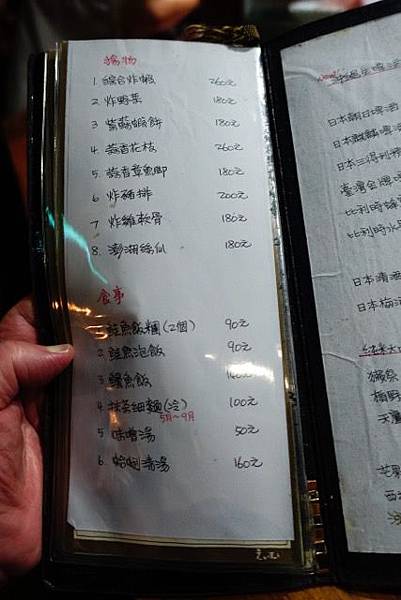 揚物
1. 綜合炸蝦 260元
2. 炸野菜 180元
3 紫蘇蝦餅 180元
4. 蒜香花枝 260元
5 蒜香章魚腳 180元
6 炸豬排 200元
7 炸雞軟骨 180元
8. 澎湖絲仙 180元
食事
1 鮭魚飯糰(2個) 90元
2 鮭魚泡飯 90元
3 鰻魚飯
4 抹茶細麵(冷) 100元
5月~9月
5 味噌湯 50元
6. 蛤蜊清湯 160元
日本朝日啤酒
日本麒麟啤酒
日本三得利
臺灣金牌啤
比利時
比利時水
日本清酒
日本梅酒